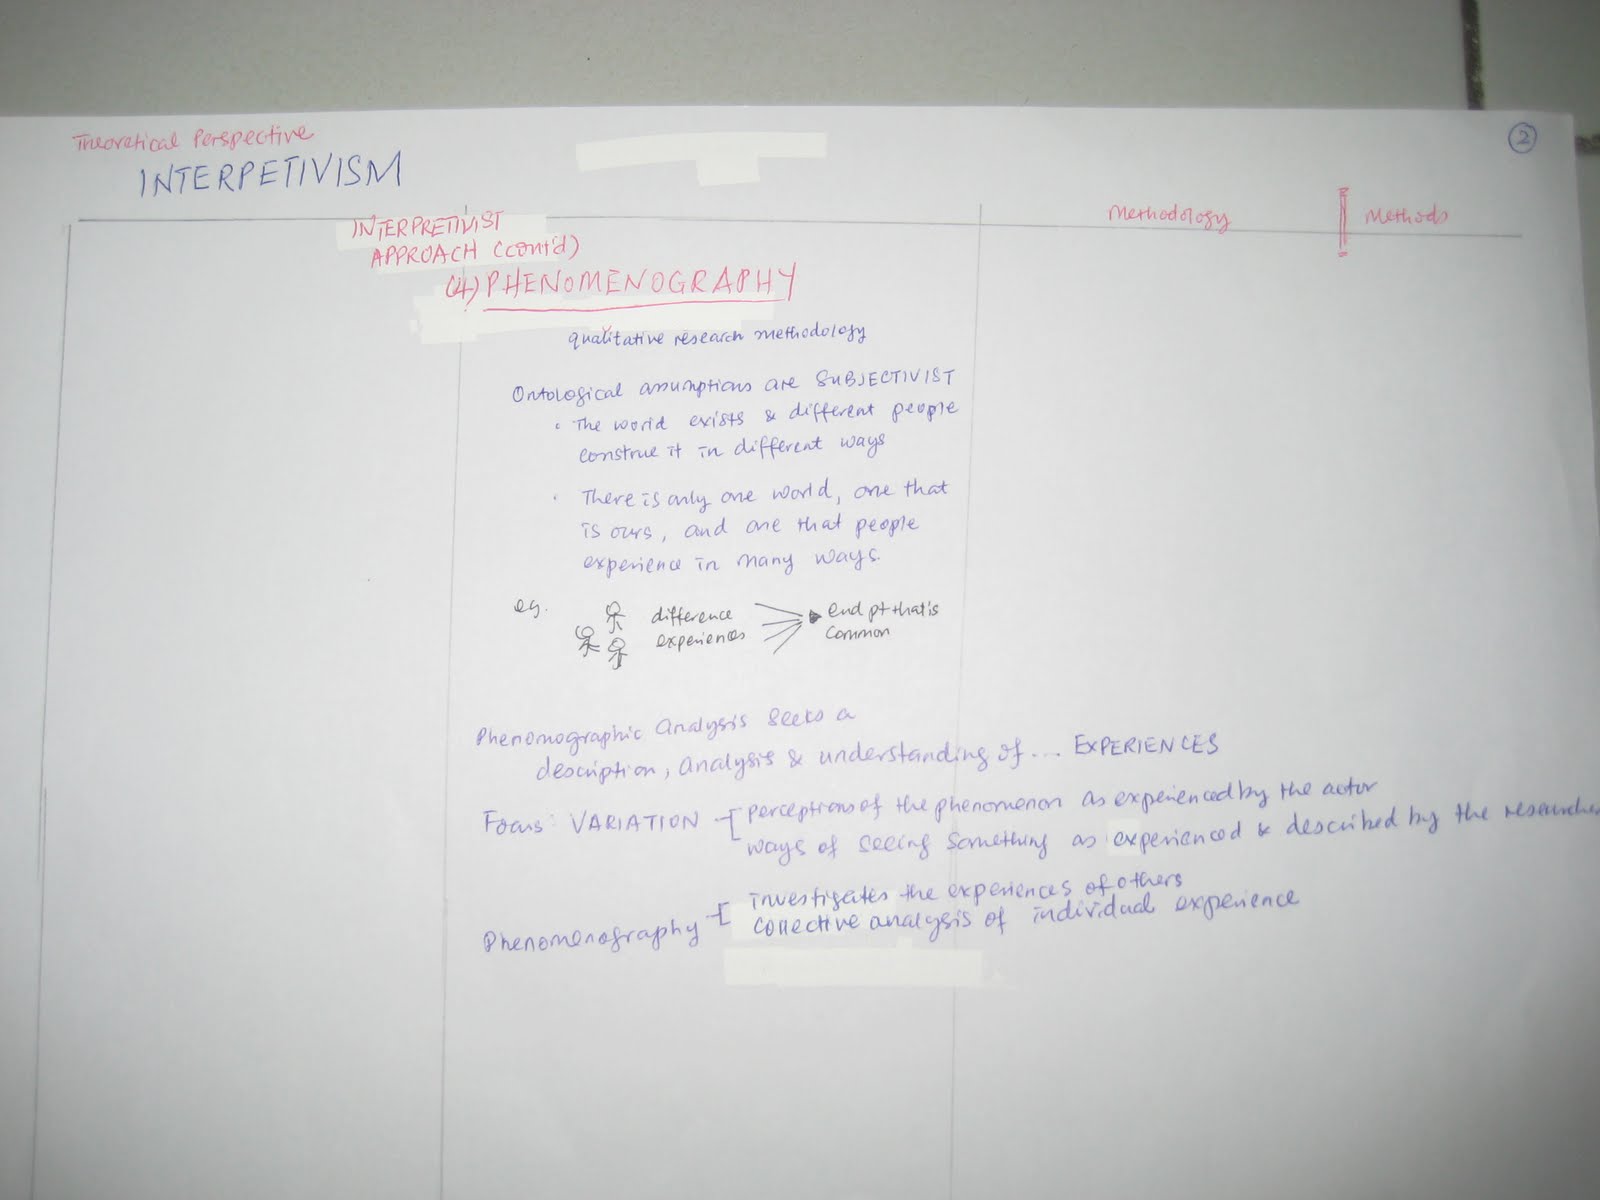 Theoretical Perspective
INTERPETIVISM
2
INTERPRETIVIST
APPROACH (cont'd)
Methodology
Methods
(4) PHENOMENOGRAPHY
qualitative research methodology
Ontological assumptions are SUBJECTIVIST
• The world exists & different people
construe it in different ways
• There is only one world, one that
is ours, and one that people
experience in many ways.
eg.
difference
experiences
end pt that is
common
Phenomographic analysis seeks a
description, analysis & understanding of ... EXPERIENCES
Focus: VARIATION
perceptions of the phenomenon as experienced by the actor
ways of seeing something as experienced & described by the researcher
Phenomenography
investigates the experiences of others
collective analysis of individual experience